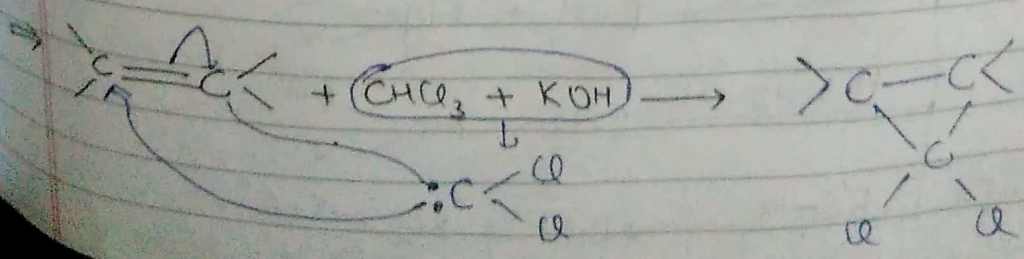 ⇒ >C=C< + CHCl₃ + KOH → >C—C<
↓
:C Cl Cl
C
Cl Cl